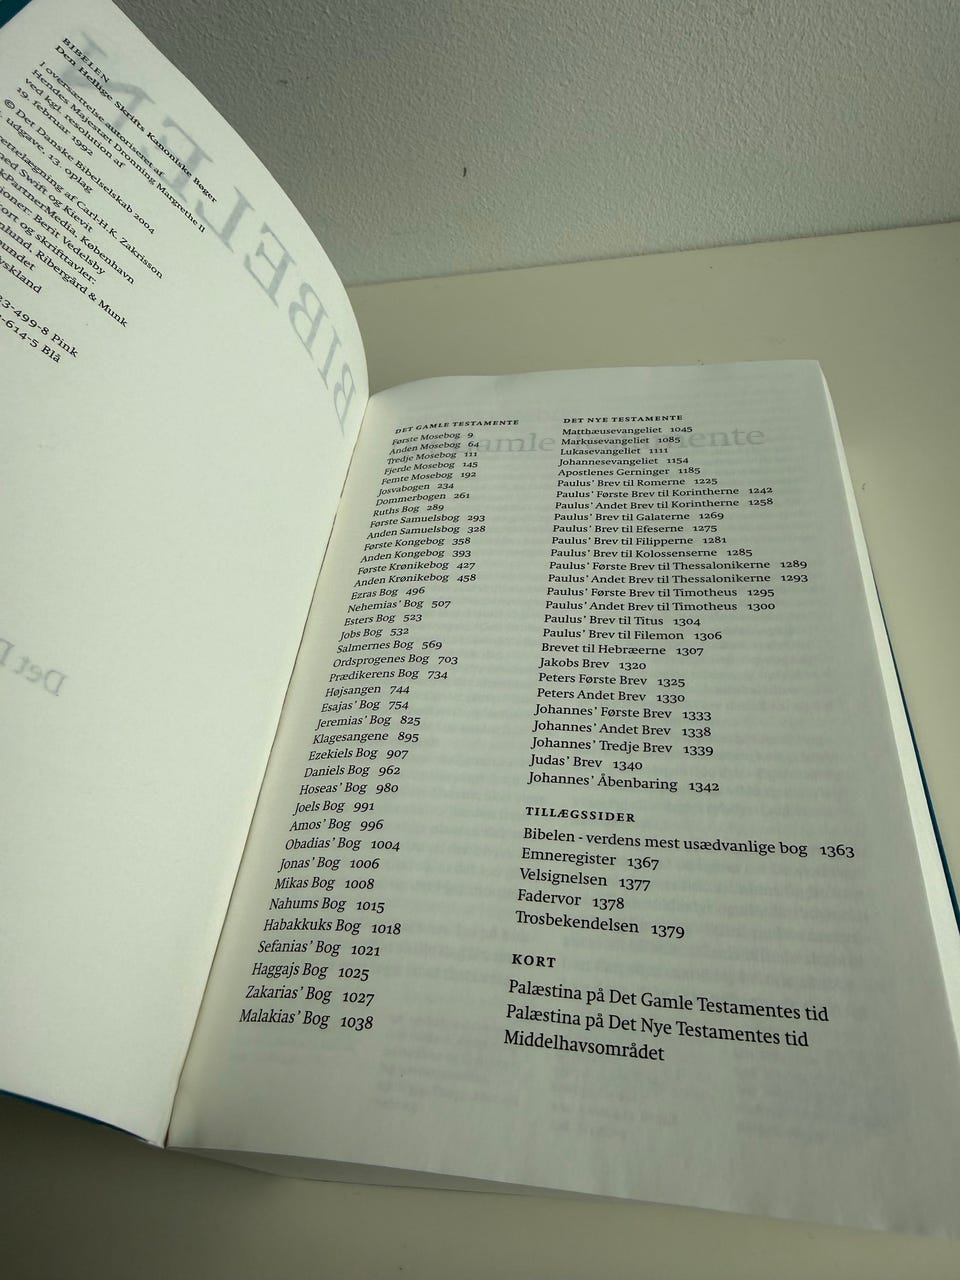 BIBELEN
Den Hellige Skrifts Kanoniske Bøger
I oversættelse autoriseret af
Hendes Majestæt Dronning Margrethe II
ved kgl. resolution af
19. februar 1992
© Det Danske Bibelselskab 2004
udgave, 13. oplag
af Carl-H.K. Zakrisson
med Swift og Kievit
København
Berit Vedelsby
kort og skrifttavler:
Ribergård & Munk
-499-8 Pink
-614-5 Blå
BIBELEN
Det
DET GAMLE TESTAMENTE
Første Mosebog 9
Anden Mosebog 64
Tredje Mosebog 111
Fjerde Mosebog 145
Femte Mosebog 192
Josvabogen 234
Dommerbogen 261
Ruths Bog 289
Første Samuelsbog 293
Anden Samuelsbog 328
Første Kongebog 358
Anden Kongebog 393
Første Krønikebog 427
Anden Krønikebog 458
Ezras Bog 496
Nehemias' Bog 507
Esters Bog 523
Jobs Bog 532
Salmernes Bog 569
Ordsprogenes Bog 703
Prædikerens Bog 734
Højsangen 744
Esajas' Bog 754
Jeremias' Bog 825
Klagesangene 895
Ezekiels Bog 907
Daniels Bog 962
Hoseas' Bog 980
Joels Bog 991
Amos' Bog 996
Obadias' Bog 1004
Jonas' Bog 1006
Mikas Bog 1008
Nahums Bog 1015
Habakkuks Bog 1018
Sefanias' Bog 1021
Haggajs Bog 1025
Zakarias' Bog 1027
Malakias' Bog 1038
DET NYE TESTAMENTE
Matthæusevangeliet 1045
Markusevangeliet 1085
Lukasevangeliet 1111
Johannesevangeliet 1154
Apostlenes Gerninger 1185
Paulus' Brev til Romerne 1225
Paulus' Første Brev til Korintherne 1242
Paulus' Andet Brev til Korintherne 1258
Paulus' Brev til Galaterne 1269
Paulus' Brev til Efeserne 1275
Paulus' Brev til Filipperne 1281
Paulus' Brev til Kolossenserne 1285
Paulus' Første Brev til Thessalonikerne 1289
Paulus' Andet Brev til Thessalonikerne 1293
Paulus' Første Brev til Timotheus 1295
Paulus' Andet Brev til Timotheus 1300
Paulus' Brev til Titus 1304
Paulus' Brev til Filemon 1306
Brevet til Hebræerne 1307
Jakobs Brev 1320
Peters Første Brev 1325
Peters Andet Brev 1330
Johannes' Første Brev 1333
Johannes' Andet Brev 1338
Johannes' Tredje Brev 1339
Judas' Brev 1340
Johannes' Åbenbaring 1342
TILLÆGSSIDER
Bibelen - verdens mest usædvanlige bog 1363
Emneregister 1367
Velsignelsen 1377
Fadervor 1378
Trosbekendelsen 1379
KORT
Palæstina på Det Gamle Testamentes tid
Palæstina på Det Nye Testamentes tid
Middelhavsområdet